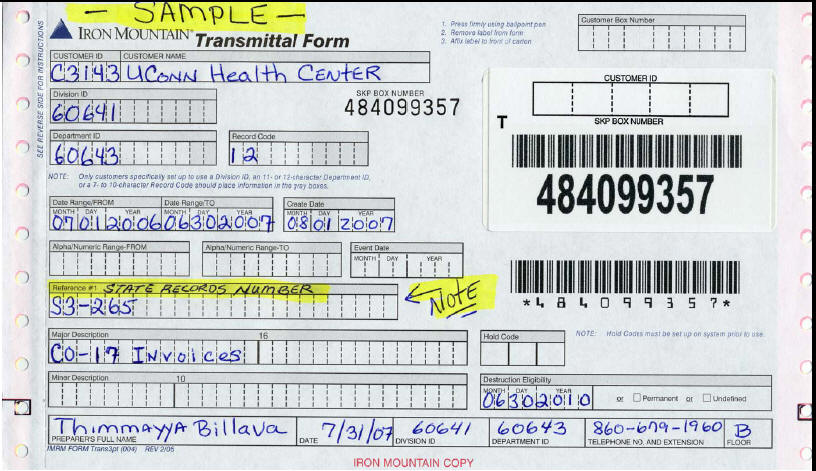 — SAMPLE —
IRON MOUNTAIN® Transmittal Form
1. Press firmly using ballpoint pen
2. Remove label from form
3. Affix label to front of carton
Customer Box Number
SEE REVERSE SIDE FOR INSTRUCTIONS
CUSTOMER ID CUSTOMER NAME
C3143 UCONN HEALTH CENTER
Division ID
60641
SKP BOX NUMBER
484099357
CUSTOMER ID
SKP BOX NUMBER
T
484099357
Department ID Record Code
60643 12
NOTE: Only customers specifically set up to use a Division ID, an 11- or 12-character Department ID,
or a 7- to 10-character Record Code should place information in the gray boxes.
Date Range/FROM Date Range/TO Create Date
MONTH DAY YEAR MONTH DAY YEAR MONTH DAY YEAR
07012006 06302007 08012007
Alpha/Numeric Range-FROM Alpha/Numeric Range-TO Event Date
MONTH DAY YEAR
Reference #1 STATE RECORDS NUMBER
S3-265
NOTE
*484099357*
Major Description 16
CO-17 Invoices
Hold Code
NOTE: Hold Codes must be set up on system prior to use.
Minor Description 10
Destruction Eligibility
MONTH DAY YEAR
06302010 or Permanent or Undefined
Thimmayya Billava 7/31/07 60641 60643 860-679-1960 B
PREPARER'S FULL NAME DATE DIVISION ID DEPARTMENT ID TELEPHONE NO. AND EXTENSION FLOOR
IMRM FORM Trans3pt (004) REV 2/05
IRON MOUNTAIN COPY